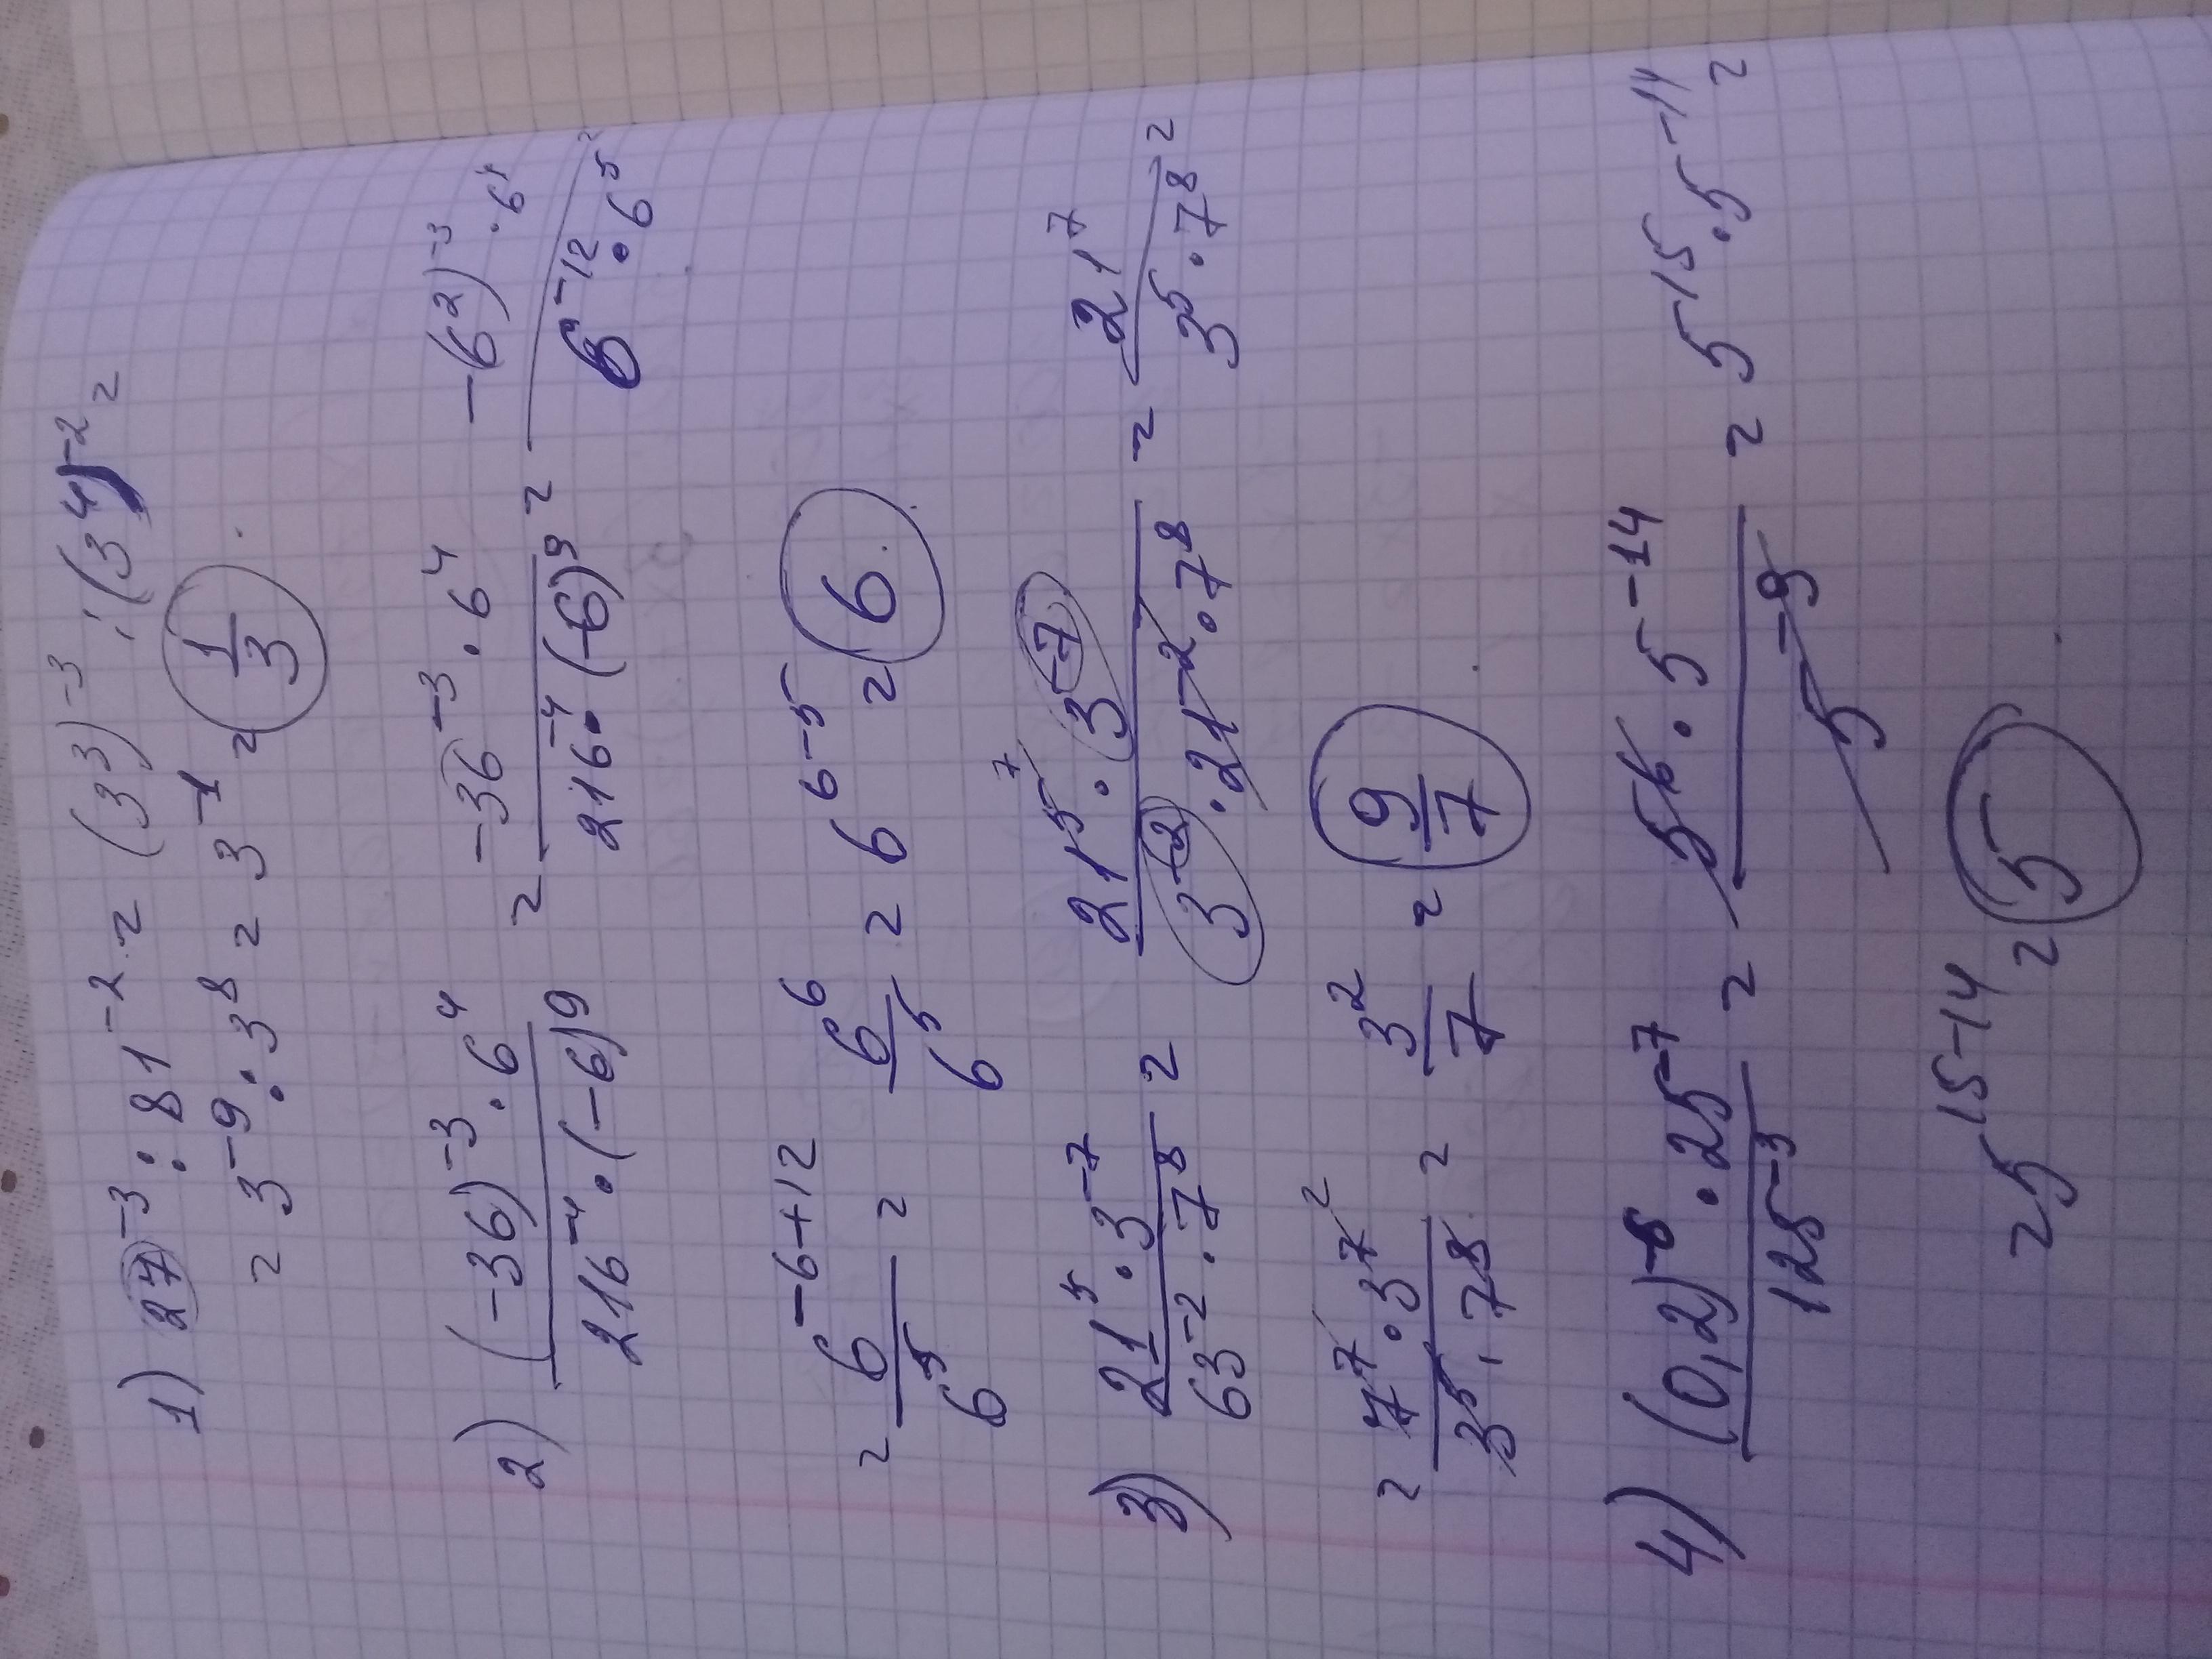 1) 27⁻³ : 81⁻² = (3³)⁻³ : (3⁴)⁻² =
= 3⁻⁹ : 3⁸ = 3⁻¹ = 1/3
2) ((-36)⁻³ · 6⁴)/(216⁻⁴ · (-6)⁹) = (-36⁻³ · 6⁴)/(216⁻⁴ · (-6)⁹) = (-6²)⁻³ · 6⁴/(6⁻¹² · 6⁵) =
= 6⁻⁶⁺¹²/6⁵ = 6⁶/6⁵ = 6⁶⁻⁵ = 6
3) (21⁵ · 3⁻⁷)/(63⁻² · 7⁸) = (21⁵ · 3⁻⁷)/(3⁻² · 21⁻² · 7⁸) = 21⁷/(3⁵ · 7⁸) =
= (7⁷ · 3⁷)/(3⁵ · 7⁸) = 3²/7 = 9/7
4) ((0,2)⁻⁶ · 25⁻⁷)/125⁻³ = (5⁶ · 5⁻¹⁴)/5⁻⁹ = 5¹⁵ · 5⁻¹⁴ =
= 5¹⁵⁻¹⁴ = 5